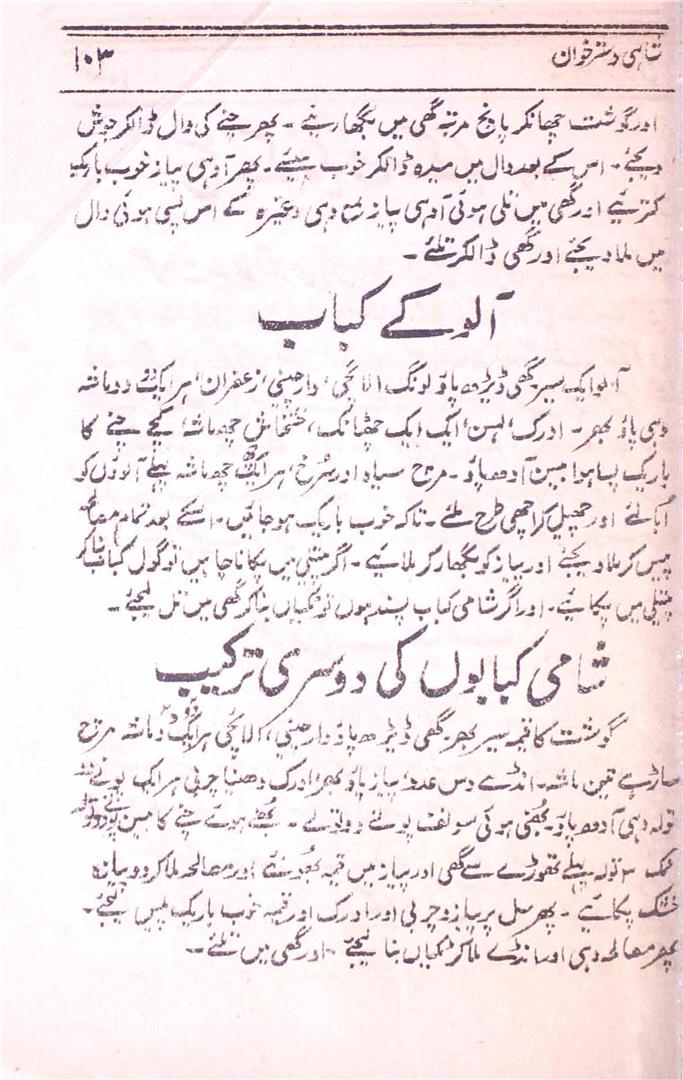 شاہی دسترخوان ۱۰۳
اور گوشت چھانکر پانچ مرتبہ گھی میں بگھاریئے۔ پھر چنے کی دال ڈالکر جوش
دیجئے۔ اس کے بعد دال میں میدہ ڈالکر خوب پیسئے۔ پھر آدھی پیاز خوب باریک
کتریئے اور گھی میں تلی ہوئی آدہی پیاز مع دہی وغیرہ کے اس پسی ہوئی دال
میں ملا دیجئے اور گھی ڈالکر تلئے۔
آلو کے کباب
آلو ایک سیر گھی ڈیڑھ پاؤ لونگ الائچی، دارچینی، زعفران، ہر ایک دو دو ماشہ
دہی پاؤ بھر۔ ادرک، لہسن، ایک ایک چھٹانک، خشخاش چھ ماشہ، کچے چنے کا
باریک پسا ہوا بیسن آدھ پاؤ۔ مرچ سیاہ اور سُرخ، ہر ایک چھ ماشہ پہلے آلوؤں کو
اُبالئے اور چھیل کر اچھی طرح ملئے۔ تاکہ خوب باریک ہو جائیں۔ اسکے بعد تمام مصالحہ
پیس کر ملا دیجئے اور پیاز کو بگھار کر ملائیے۔ اگر پتیلی میں پکانا چاہیں تو گول کباب بنا کر
پتیلی میں پکائیے۔ اور اگر شامی کباب پسند ہوں تو ٹکیاں بنا کر گھی میں تل لیجئے۔
شامی کبابوں کی دوسری ترکیب
گوشت کا قیمہ سیر بھر گھی ڈیڑھ پاؤ دارچینی، الائچی ہر ایک دو ماشہ مرچ
ساڑھے تین ماشہ۔ انڈے دس عدد، پیاز پاؤ بھر، ادرک دھنیا چربی ہر ایک پونے
تولہ دہی آدھ پاؤ۔ بھُنی ہوئی سونف پونے دو تولے۔ بھُنے ہوئے چنے کا بیسن
نمک ۳ تولہ پہلے تھوڑے سے گھی اور پیاز میں قیمہ بھونئے اور مصالحہ ملا کر دو پیازہ
خشک پکائیے۔ پھر سل پر پیاز و چربی اور ادرک اور قیمہ خوب باریک پیس لیجئے۔
پھر مصالحہ دہی اور انڈے ملا کر ٹکیاں بنا لیجئے اور گھی میں تلئے۔